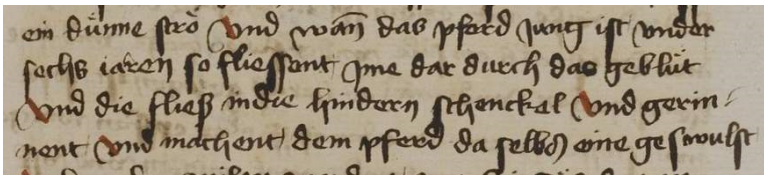 ein dünne strö Vnd wan̄ das pferd jung ist vnder
sechs iaren so fliessent jme dar durch das geblüt
Vnd die fließ in die hindern schenckel Vnd gerin-
nent Vnd machent dem pferd da selbs eine geswulst